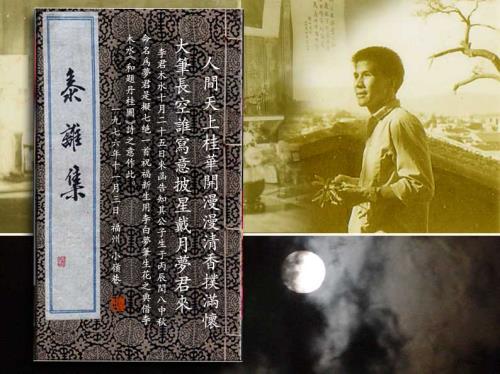 黍離集
人間天上桂華開漫漫清香撲滿懷
大筆長空誰寫意披星戴月夢君來
李君木水十月二十五日來函告知其公子生于丙辰閏八中秋
命名為夢君是擬七絕一首祝福新生用李白夢筆生花之典借李
木水《和題丹桂圖》詩之意作此
一九七六年十一月三日 福州 小領巷